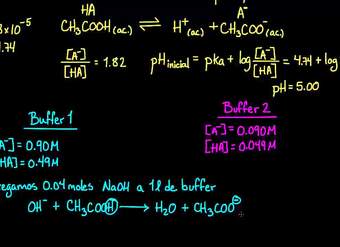 HA A⁻
8x10⁻⁵ CH₃COOH(ac.) ⇌ H⁺(ac) + CH₃COO⁻(ac.)
.74
[A⁻]/[HA] = 1.82 pH inicial = pka + log [A⁻]/[HA] = 4.74 + log
pH = 5.00
Buffer 1 Buffer 2
[A⁻] = 0.90M [A⁻] = 0.090M
[HA] = 0.49M [HA] = 0.049M
regamos 0.04 moles NaOH a 1l de buffer
OH⁻ + CH₃COOH → H₂O + CH₃COO⁻